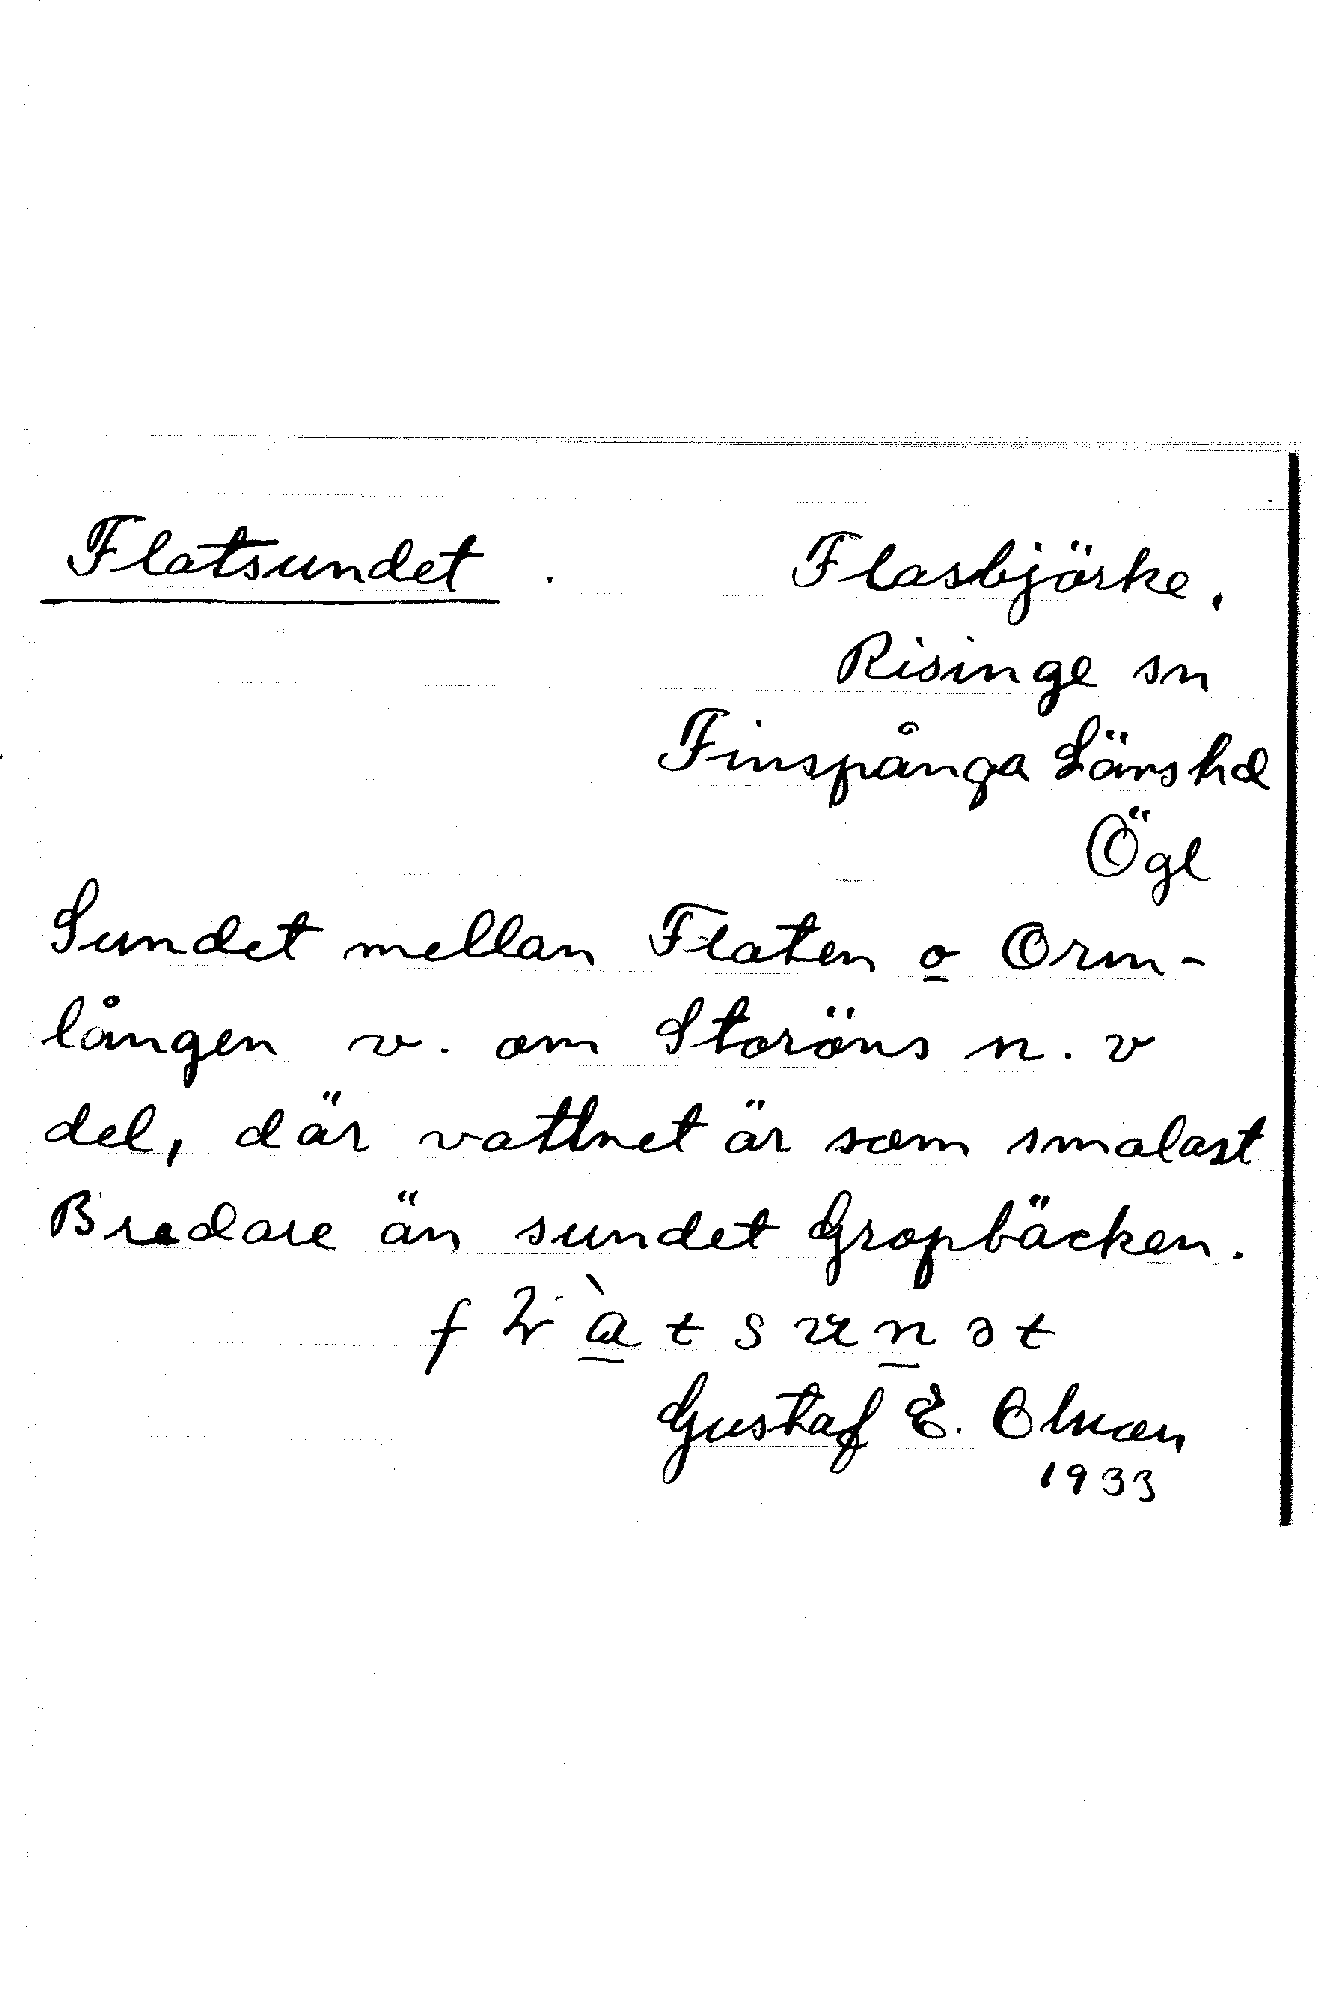 Flatsundet. Flasbjörke.
Risinge sn
Finspånga Länshd
Ögl
Sundet mellan Flaten o Orm-
lången v. om Storöns n.v
del, där vattnet är som smalast
Bredare än sundet Gropbäcken.
Gustaf E.
1933